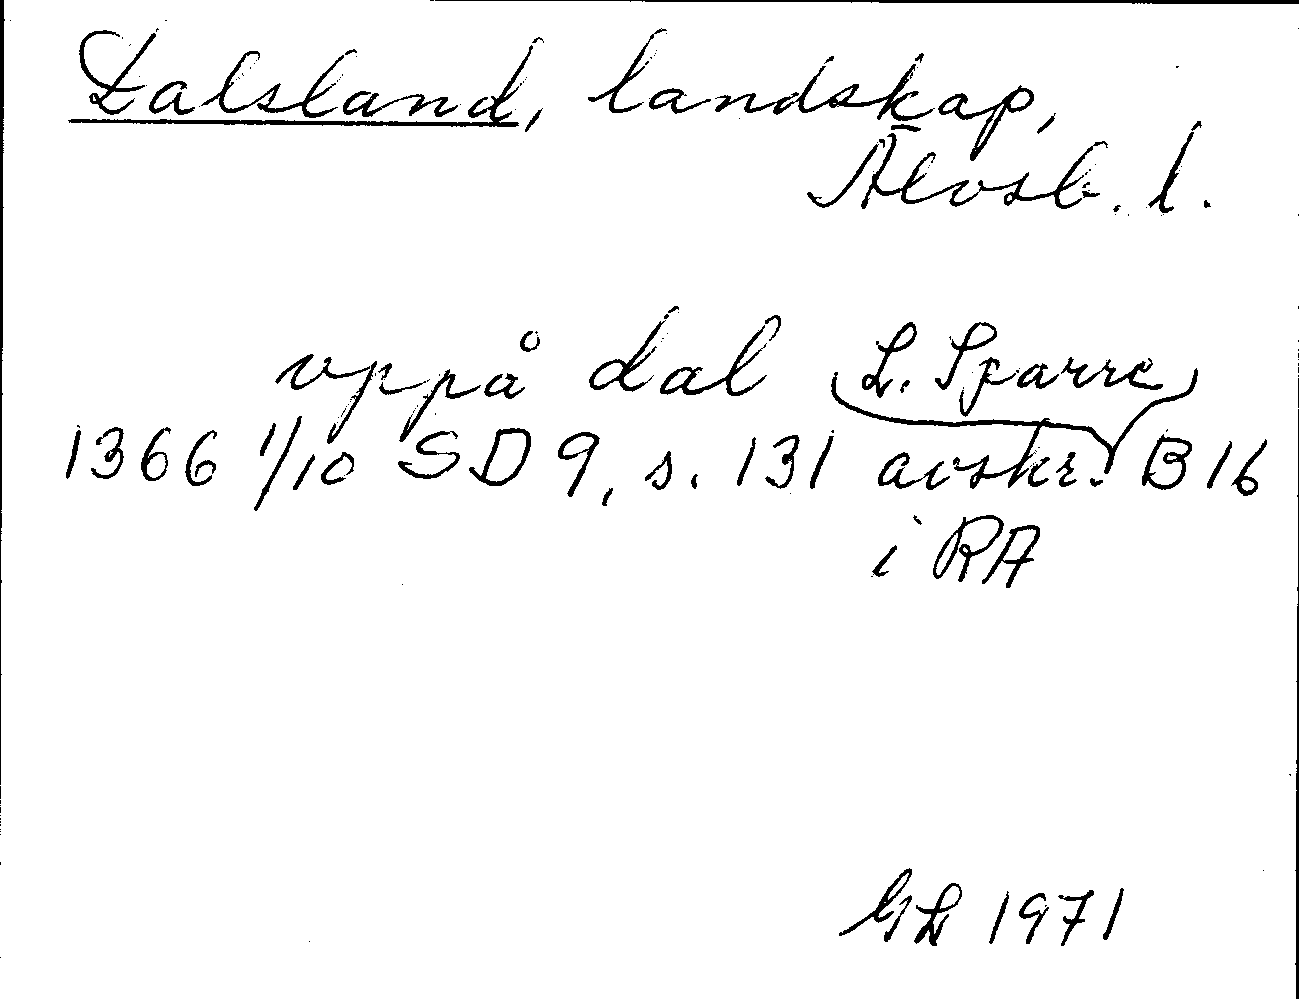 Dalsland, landskap,
Älvsb. l.
vppå dal L. Sparre
1366 1/10 SD 9, s. 131 avskr. B 16
i RA
GL 1971